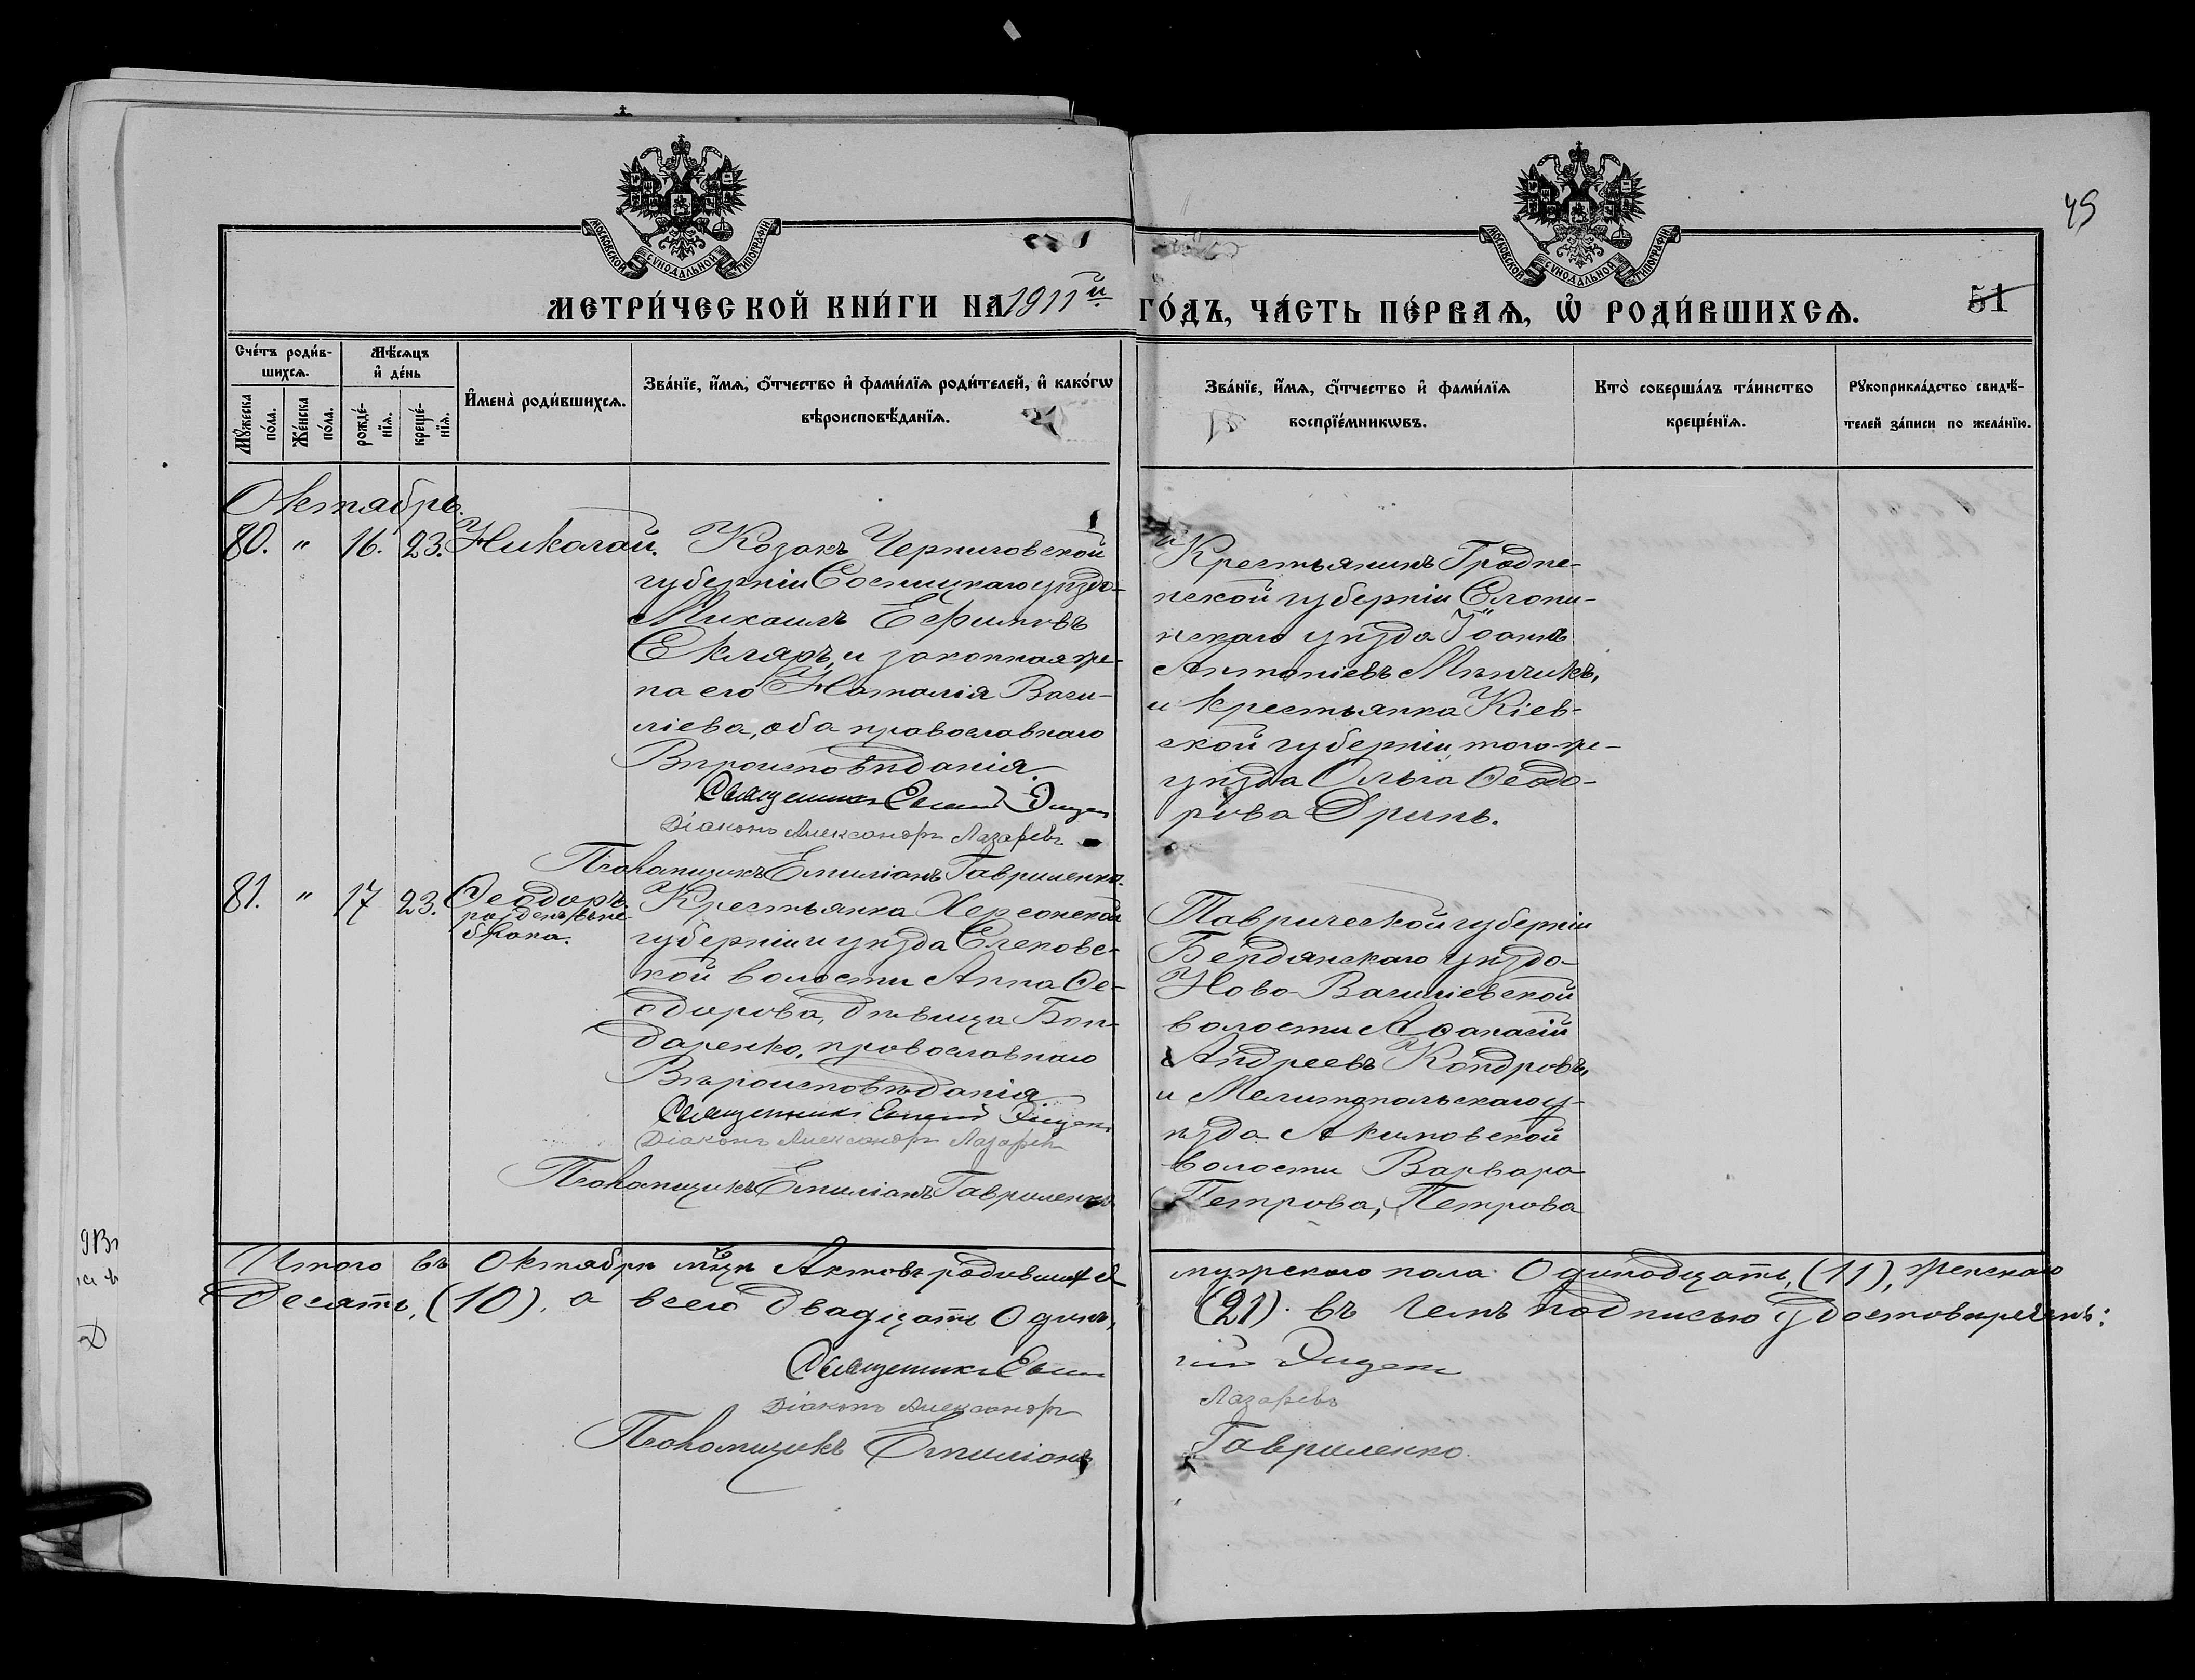 49
МОСКОВСКОЙ СѴНОДАЛЬНОЙ ТИПОГРАФІИ
МОСКОВСКОЙ СѴНОДАЛЬНОЙ ТИПОГРАФІИ
МЕТРИ́ЧЕСКОЙ КНИ́ГИ НА 1911й ГО́ДЪ, ЧА́СТЬ ПЕ́РВАѦ, Ѡ҆ РОДИ́ВШИХСѦ.
51
Сче́тъ роди́в-
шихсѧ.
Мꙋ́жеска
по́ла.
Же́нска
по́ла.
Мѣ́сѧцъ
и҆ де́нь
рожде́-
нїѧ.
креще́-
нїѧ.
И҆мена̀ роди́вшихсѧ.
Зва́нїе, и҆́мѧ, ѻ҆́тчество и҆ фами́лїѧ роди́телей, и҆ како́гѡ
вѣроисповѣ́данїѧ.
Зва́нїе, и҆́мѧ, ѻ҆́тчество и҆ фами́лїѧ
воспрїе́мникѡвъ.
Кто̀ соверша́лъ та́инство
креще́нїѧ.
Рꙋкоприкла́дство свидѣ́-
телей за́писи по жела́нїю.
Октябрь.
80. " 16. 23. Николай.
Козакъ Черниговской
губерніи Сосницкаго уѣзда
Михаилъ Ефимовъ
Скляръ, и законная же-
на его Наталія Васи-
ліева, оба православнаго
Вѣроисповѣданія.
Священникъ
Діаконъ Александръ Лазаревъ
Псаломщикъ Емиліанъ Гавриленко.
Крестьянинъ Гродне-
нской губерніи Слони-
мскаго уѣзда Іоаннъ
Антоніевъ
и крестьянка Кіев-
ской губерніи, того-же
уѣзда Ольга Ѳеодо-
рова
81. " 17 23. Ѳеодоръ.
рожденъ внѣ
брака.
Крестьянка Херсонской
губерніи и уѣзда
кой волости Анна Ѳе-
одорова, дѣвица Бон-
даренко, православнаго
Вѣроисповѣданія
Священникъ
Діаконъ Александръ Лазаревъ
Псаломщикъ Емиліанъ Гавриленко.
Таврической губерніи
Бердянскаго уѣзда
Ново-Василіевской
волости Аѳанасій
Андреевъ Кондровъ,
и Мелитопольскаго у-
ѣзда Акимовской
волости Варвара
Петрова, Петрова
Итого въ Октябрѣ мѣсцѣ Актовъ родившихся мужескаго пола Одинадцать, (11), женскаго
Десять, (10), а всего двадцать Одинъ, (21). въ чемъ подписью удостовѣряемъ:
Священникъ
Діаконъ Александръ Лазаревъ
Псаломщикъ Емиліанъ Гавриленко.